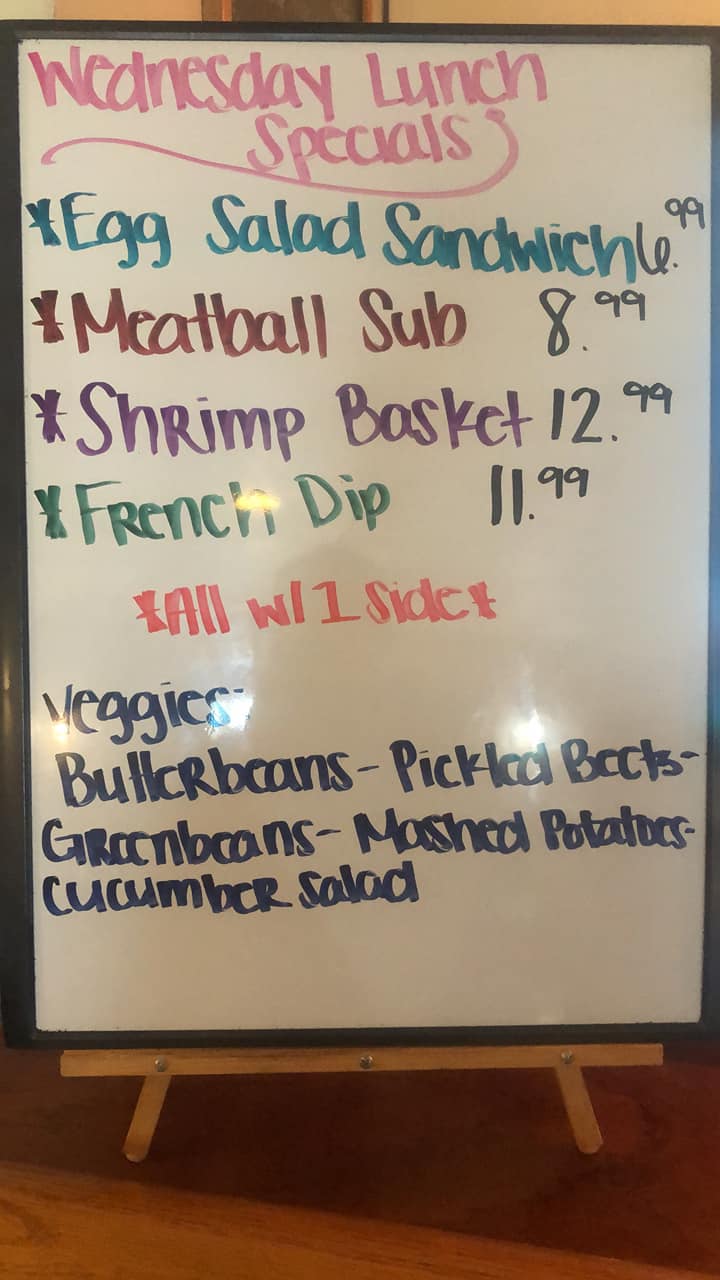 Wednesday Lunch
Specials
*Egg Salad Sandwich 6.99
*Meatball Sub 8.99
*Shrimp Basket 12.99
*French Dip 11.99
*All w/ 1 Side*
Veggies:
Butterbeans- Pickled Beets-
Greenbeans- Mashed Potatoes-
Cucumber Salad